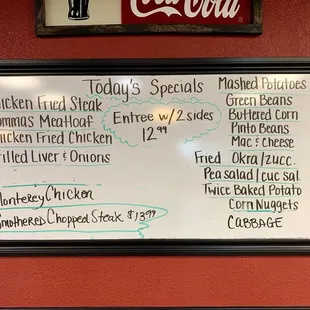 Coca-Cola
Today's Specials
hicken Fried Steak
ommas Meatloaf
hicken Fried Chicken
rilled Liver & Onions
Entree w/2 sides
12.99
onterey Chicken
mothered Chopped Steak $13.99
Mashed Potatoes
Green Beans
Buttered Corn
Pinto Beans
Mac & Cheese
Fried Okra/zucc.
Pea salad/cuc sal.
Twice Baked Potato
Corn Nuggets
CABBAGE